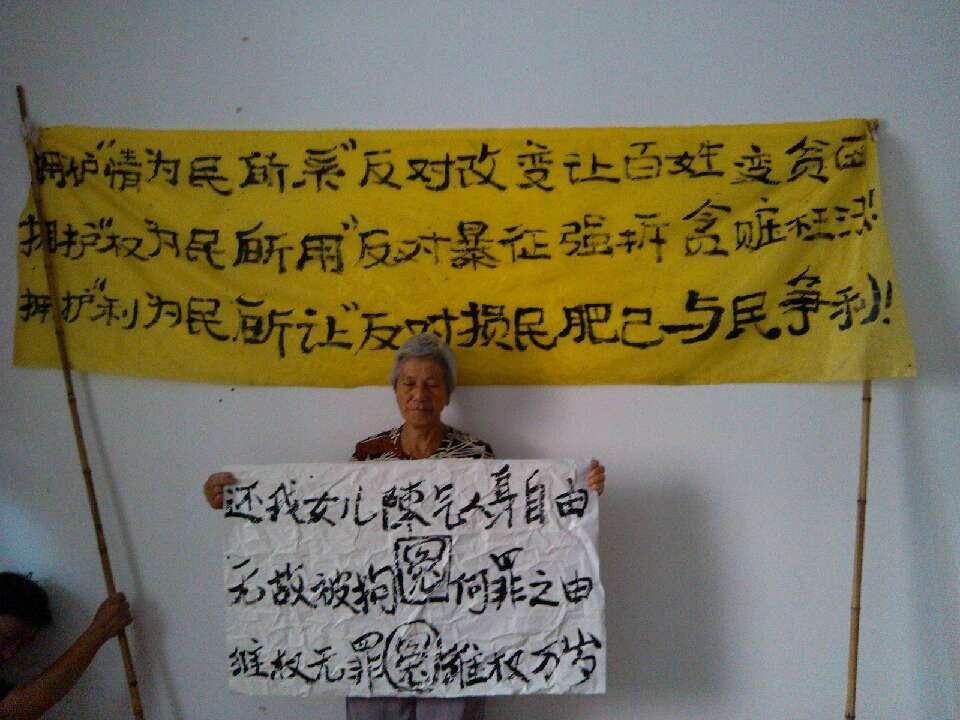 拥护"情为民所系"反对改变让百姓变贫困
拥护"权"为民所用"反对暴征强拆贪赃枉法!
拥护"利"为民所让"反对损民肥己与民争利!
还我女儿陳 人身自由
无故被拘冤何罪之由
维权无罪冤维权万岁